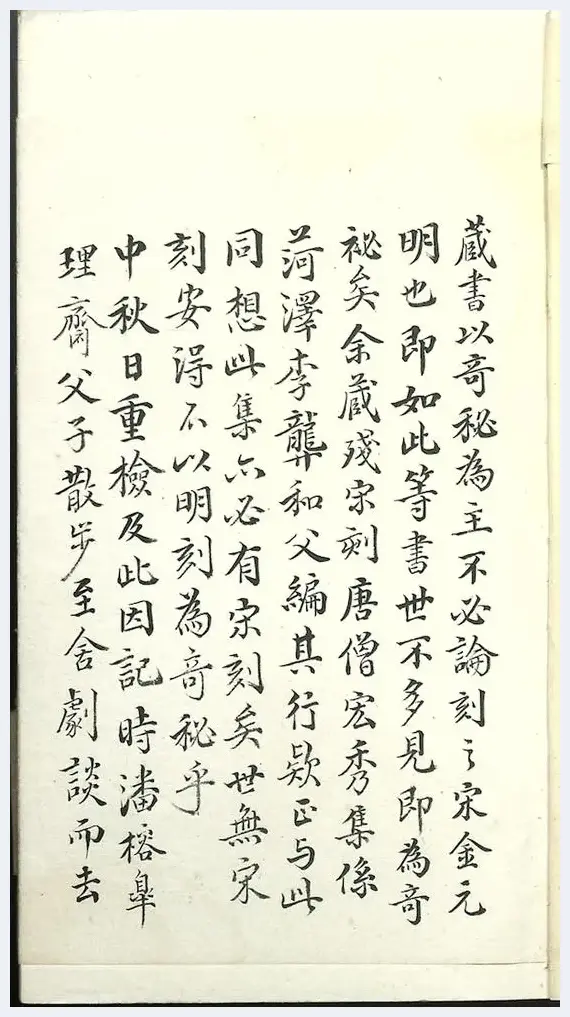 蔵書以竒秘為主不必論刻之宋金元
明也即如此等書世不多見即為竒
袐矣余蔵殘宋刻唐僧宏秀集係
菏澤李龏和父編其行欵正与此
同想此集亦必有宋刻矣世無宋
刻安得不以明刻為竒秘乎
中秋日重檢及此因記時潘榕皋
理齋父子散步至舍劇談而去